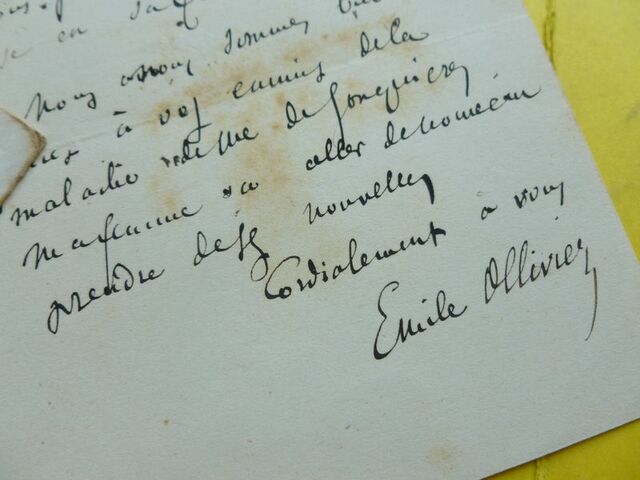 nous avons sommes
à vos ennuis de la
maladie de Me de Jonquières
ma femme va aller de nouveau
prendre de ses nouvelles
Cordialement à vous
Emile Ollivier